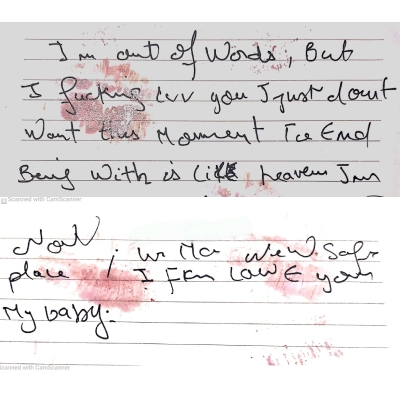 I'm out of Words, But
I fucking luv you I just dont
Want this Moment To End
Being With is Like heaven I'm
Scanned with CamScanner
Now in My New Safe
place / I Fkn Love you
My baby.
Scanned with CamScanner